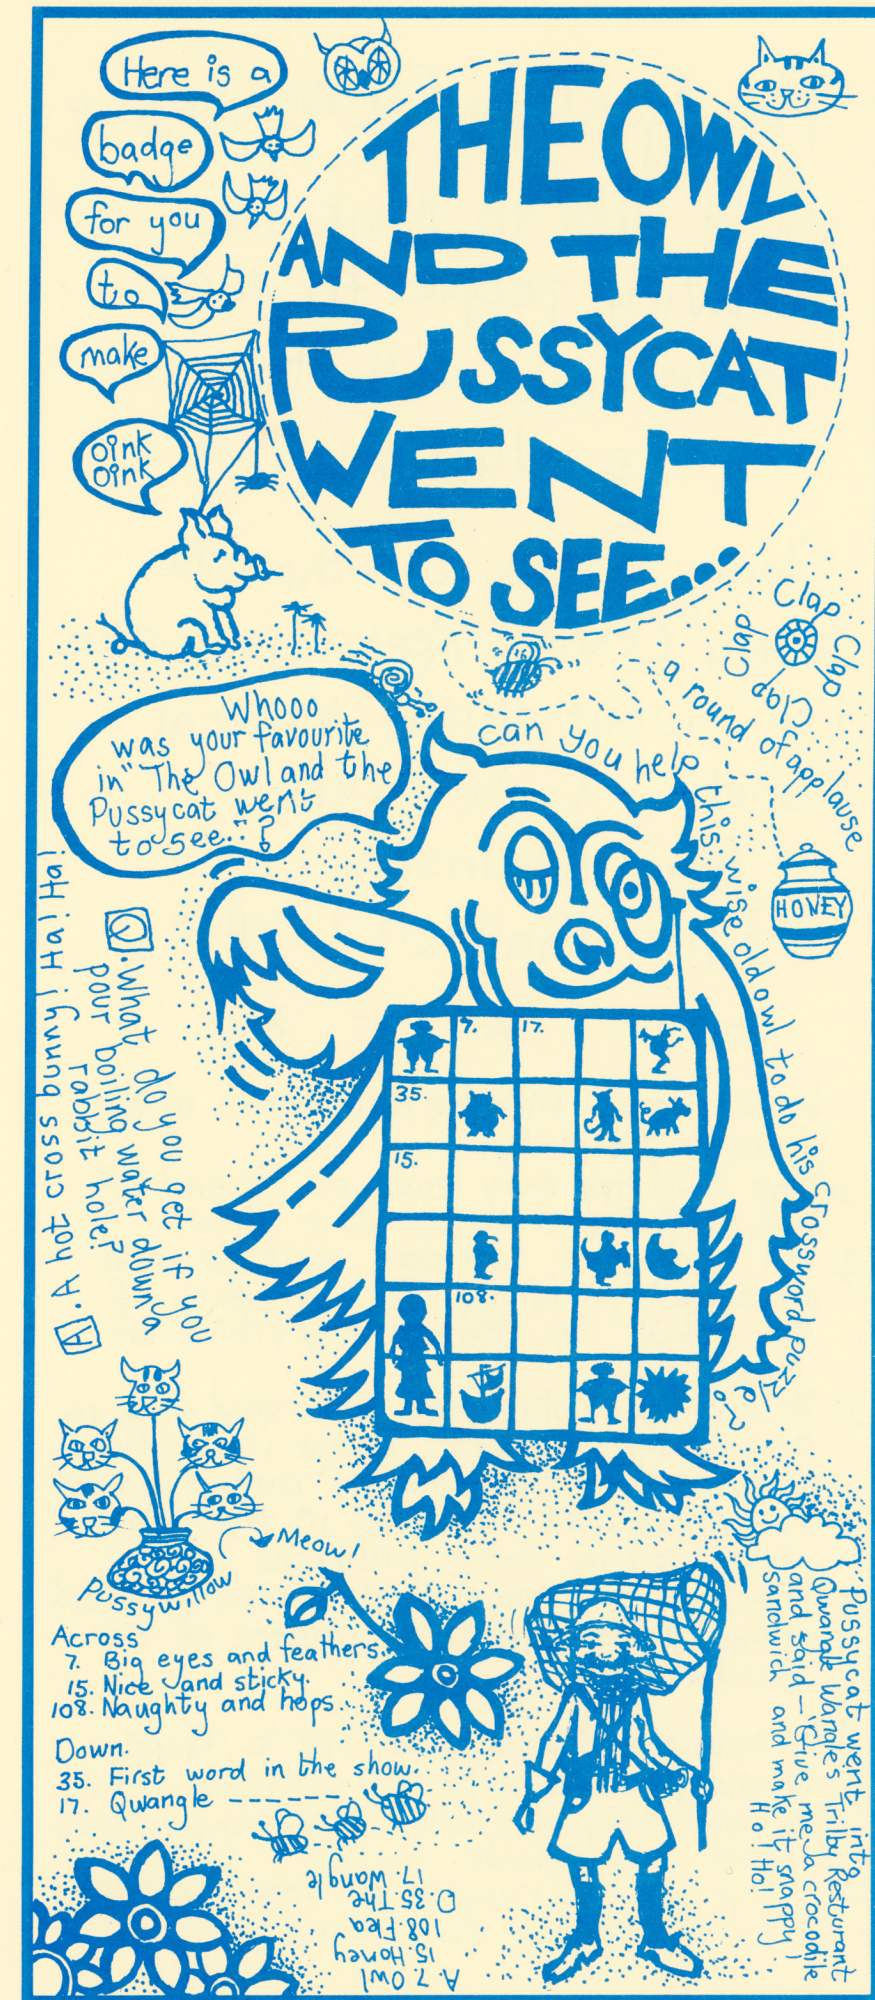 Here is a
badge
for you
to
make
oink
oink
THE OWL
AND THE
PUSSYCAT
WENT
TO SEE...
Clap Clap Clap Clap
a round of applause
Whooo
was your favourite
in "The Owl and the
Pussycat went
to see..."?
can you help this wise old owl to do his crossword puzzle
HONEY
Q. What do you get if you
pour boiling water down a
rabbit hole?
A. A hot cross bunny! Ha! Ha!
7.
17.
35.
15.
108.
Meow!
Pussywillow
Across
7. Big eyes and feathers.
15. Nice and sticky.
108. Naughty and hops.
Down.
35. First word in the show.
17. Qwangle ------
Pussycat went into
Qwangle Wangles Trilby Resturant
and said - 'Give me a crocodile
sandwich and make it snappy!
Ho! Ho!
A 7 Owl
15. Honey
108. Flea
D. 35 The
17. Wangle